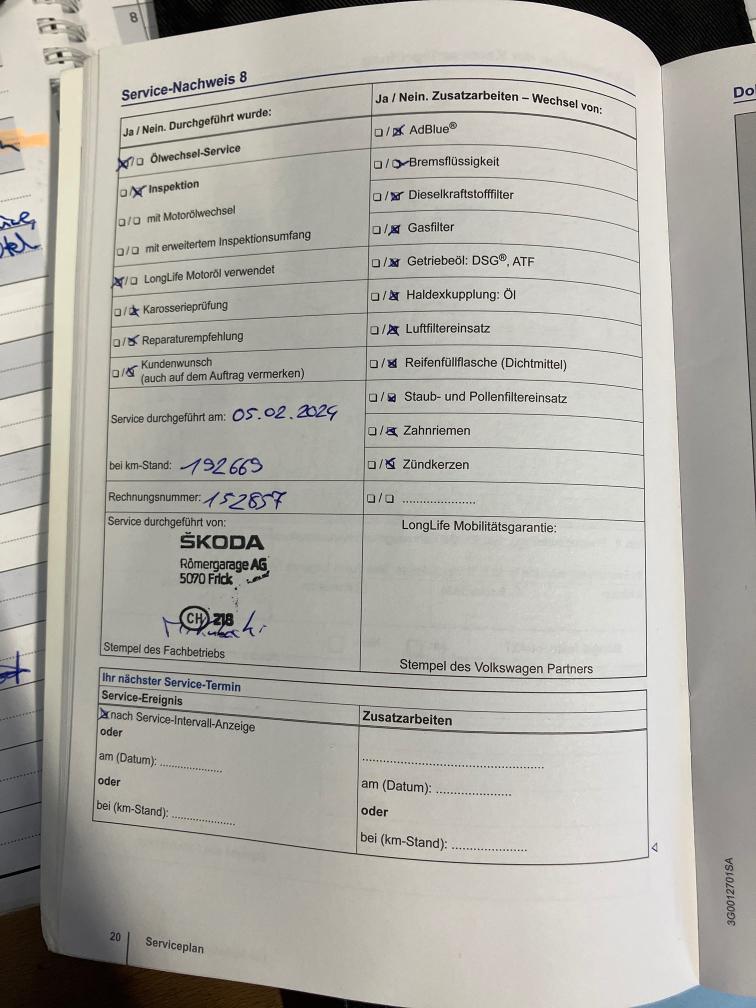 8
Service-Nachweis 8
Ja / Nein. Durchgeführt wurde:
Ölwechsel-Service
Inspektion
mit Motorölwechsel
mit erweitertem Inspektionsumfang
LongLife Motoröl verwendet
Karosserieprüfung
Reparaturempfehlung
Kundenwunsch
(auch auf dem Auftrag vermerken)
Service durchgeführt am: 05.02.2024
bei km-Stand: 192669
Rechnungsnummer: 152857
Service durchgeführt von:
ŠKODA
Römergarage AG
5070 Frick
CH 218
Stempel des Fachbetriebs
Ja / Nein. Zusatzarbeiten – Wechsel von:
AdBlue®
Bremsflüssigkeit
Dieselkraftstofffilter
Gasfilter
Getriebeöl: DSG®, ATF
Haldexkupplung: Öl
Luftfiltereinsatz
Reifenfüllflasche (Dichtmittel)
Staub- und Pollenfiltereinsatz
Zahnriemen
Zündkerzen
.....................
LongLife Mobilitätsgarantie:
Stempel des Volkswagen Partners
Ihr nächster Service-Termin
Service-Ereignis
nach Service-Intervall-Anzeige
oder
am (Datum): ..................
oder
bei (km-Stand): ..................
Zusatzarbeiten
....................................................
am (Datum): .....................
oder
bei (km-Stand): .....................
20
Serviceplan
3G0012701SA